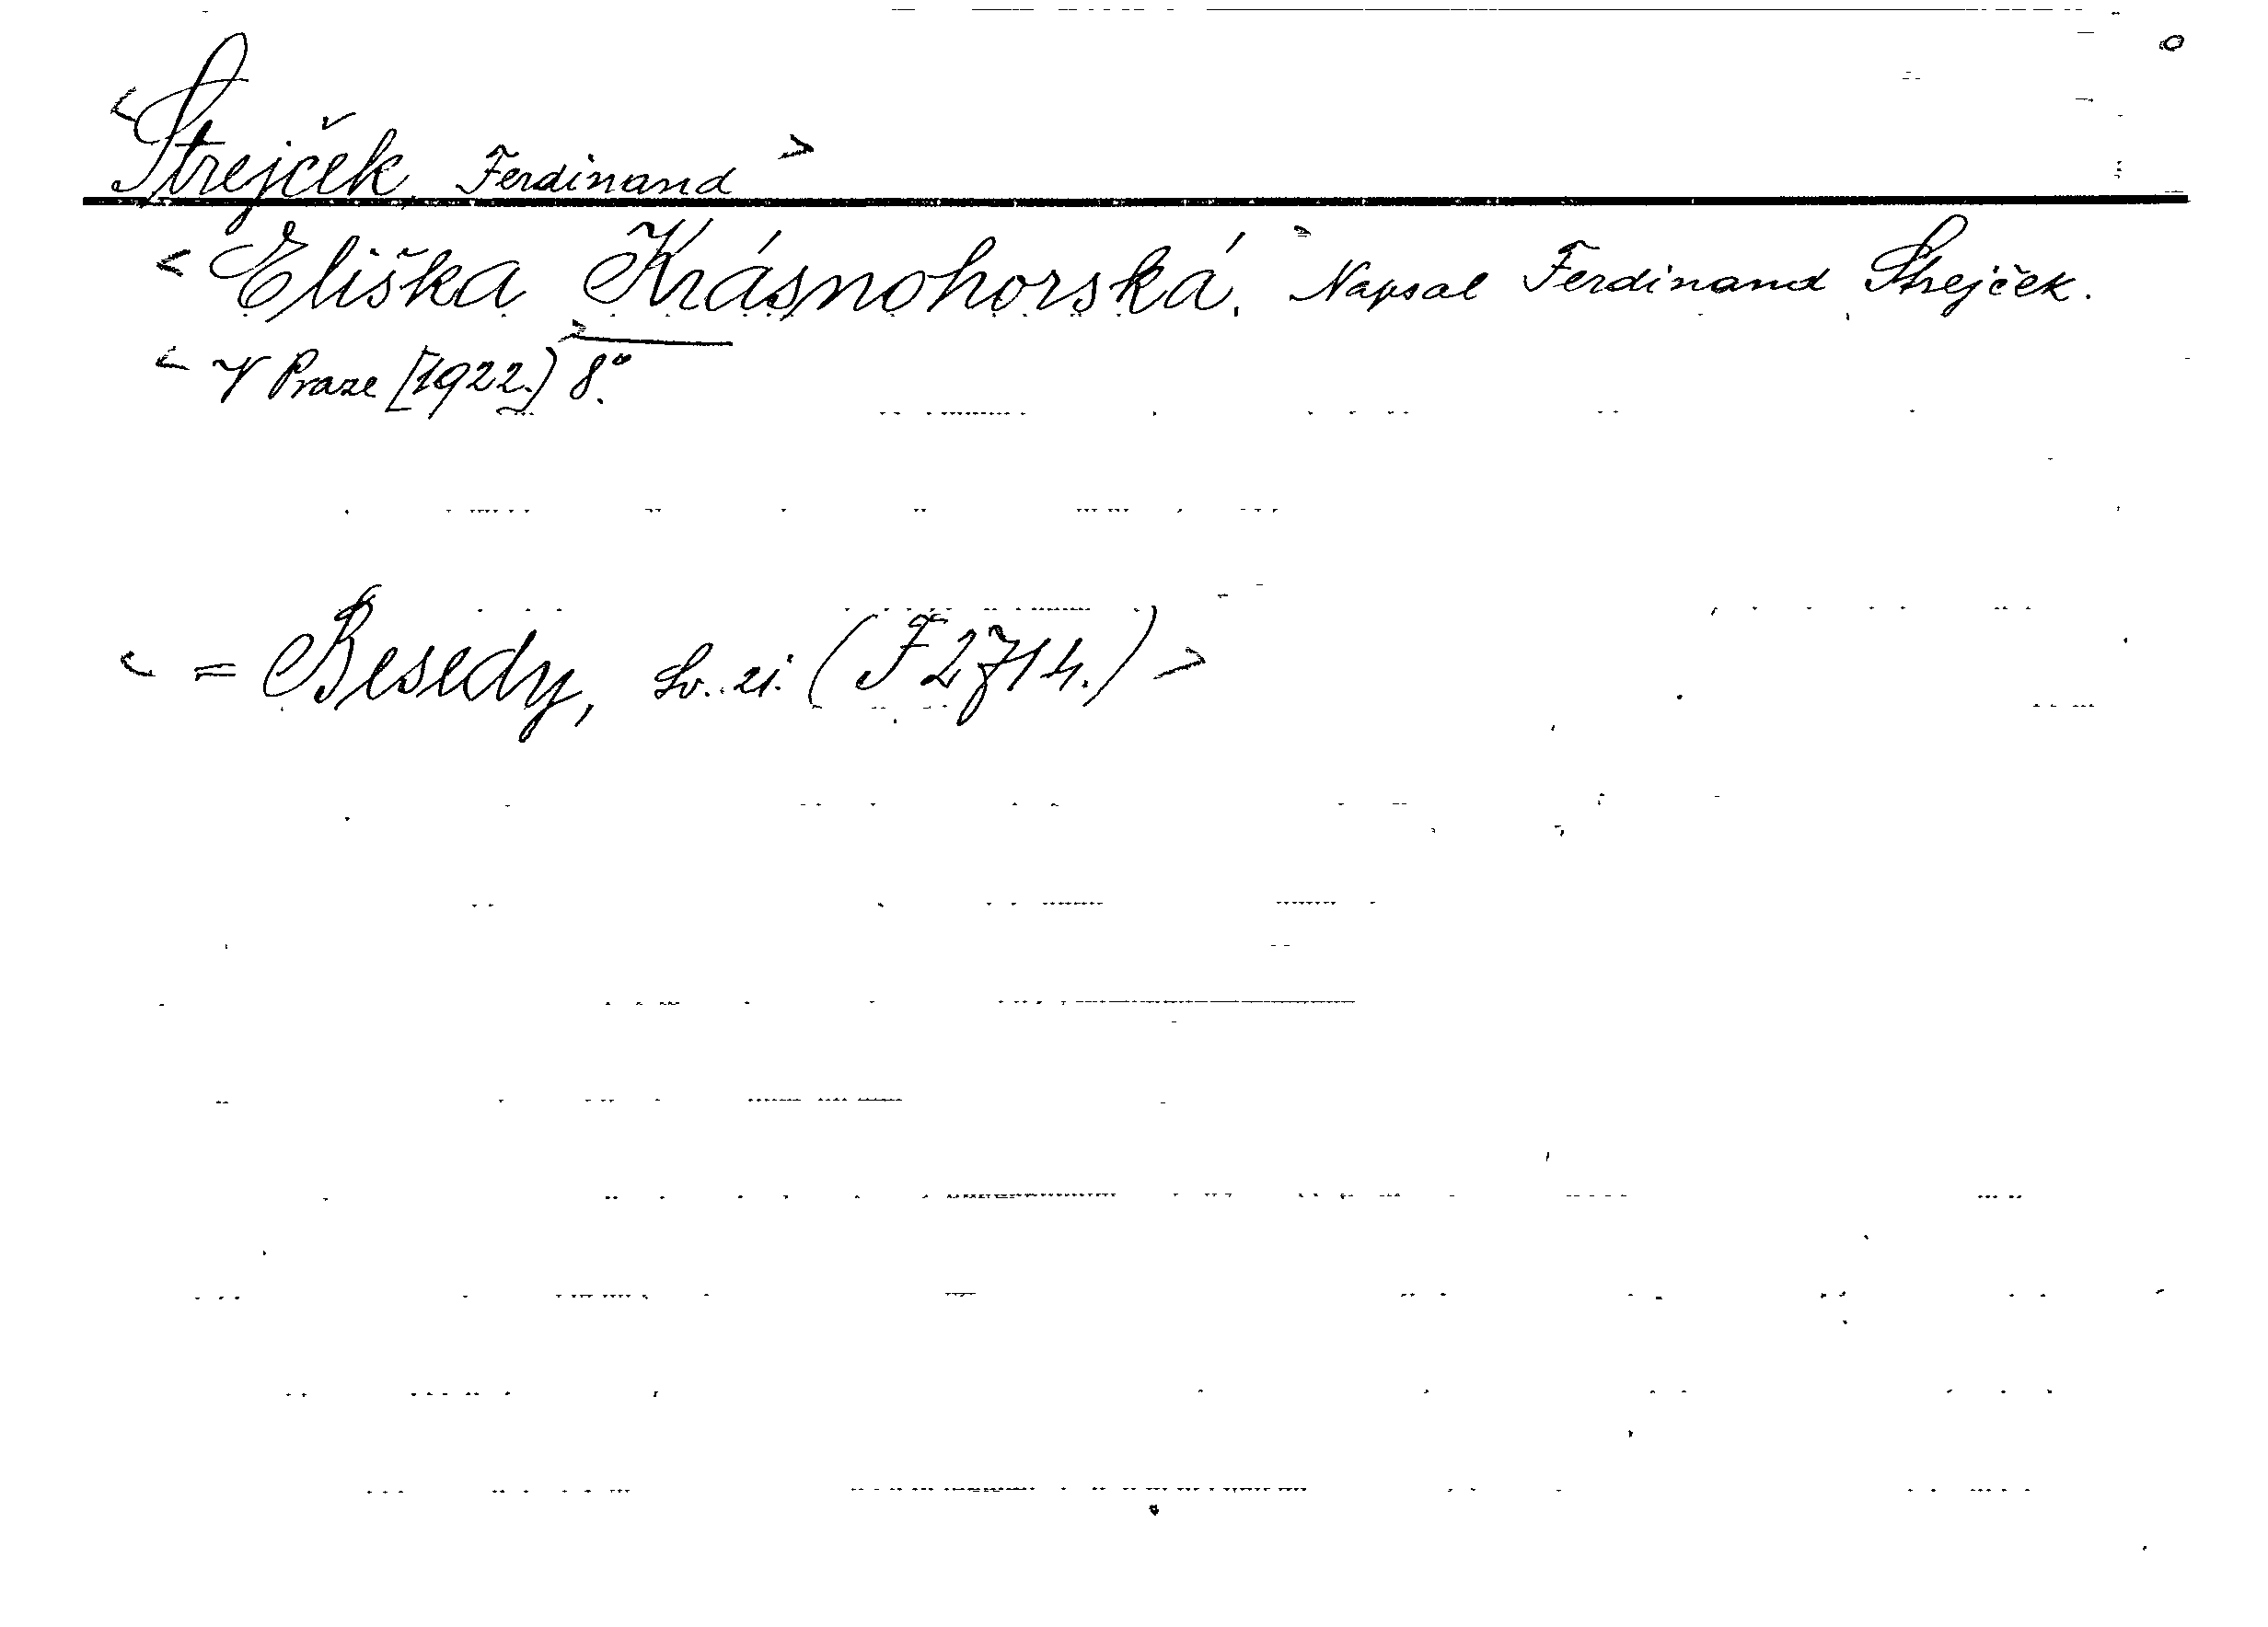 <Strejček, Ferdinand>
<Eliška Krásnohorská.> Napsal Ferdinand Strejček.
<V Praze [1922.)> 8°.
<= Besedy, Sv. 21. (F 2714.)>